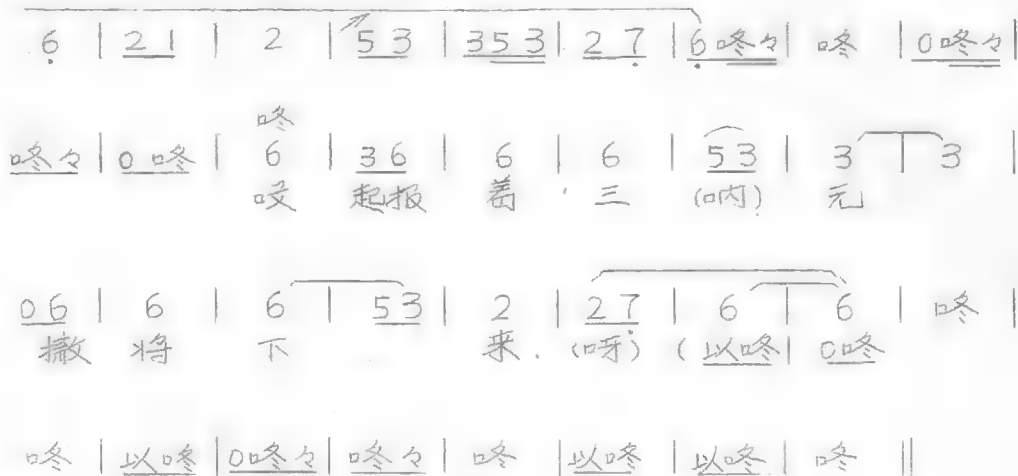 6 | 2 1 | 2 | 5 3 | 3 5 3 | 2 7 | 6 咚々 | 咚 | 0 咚々 |
咚
咚々 | 0 咚 | 6 | 3 6 | 6 | 6 | 5 3 | 3 | 3
起报 着 . 三 (呐) 元
0 6 | 6 | 6 | 5 3 | 2 | 2 7 | 6 | 6 | 咚 |
撒 将 下 来 . (呀) ( 以咚 | 0 咚
咚 | 以咚 | 0 咚々 | 咚々 | 咚 | 以咚 | 以咚 | 咚 ‖